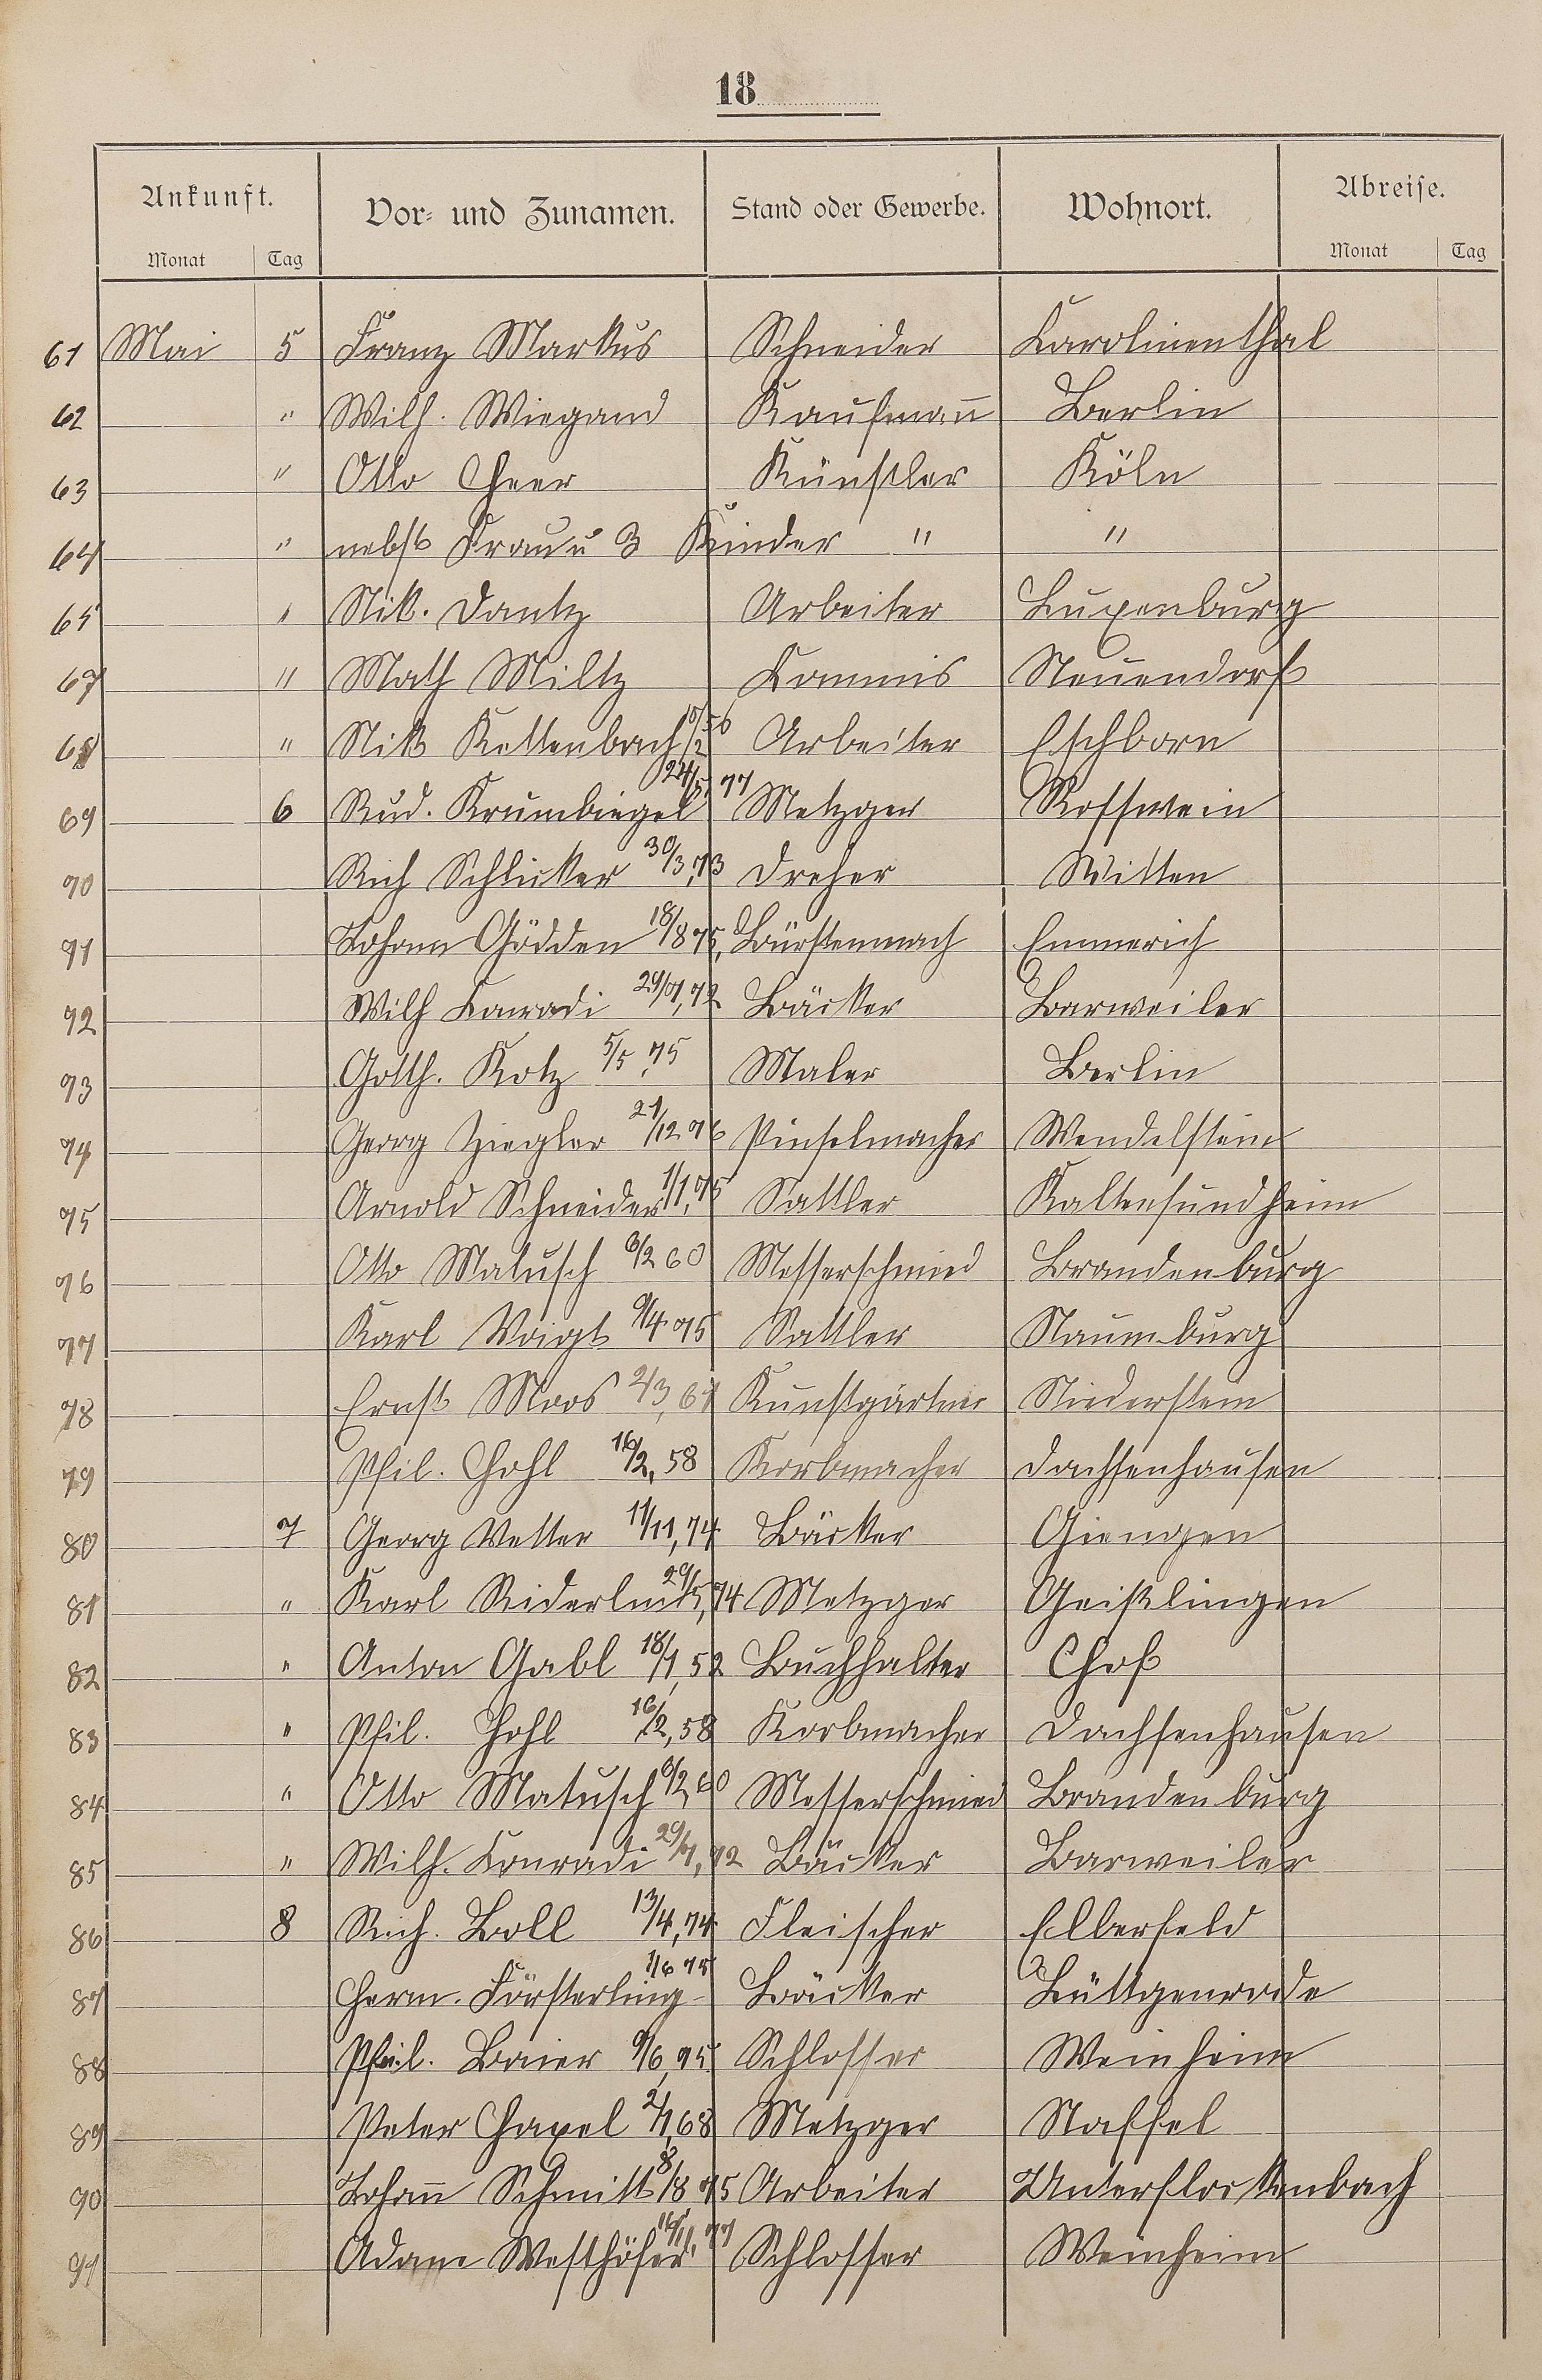 18
Ankunft. Vor- und Zunamen. Stand oder Gewerbe. Wohnort. Abreise.
Monat Tag Monat Tag
61 Mai 5 Franz Markus Schneider Karolinenthal
62 " Wilh. Wiegand Kaufmann Berlin
63 " Otto Heer Künstler Köln
64 " nebst Frau u 3 Kinder " "
65 " Nik. Dantz Arbeiter Luxenburg
67 " Math Miltz Kommis Neuendorf
68 " Nik Kettenbach Arbeiter Eschborn
69 6 Rud. Krumbiegel 24/5, 77 Metzger Rosswein
70 Rich Schlicker 30/3, 73 Dreher Witten
71 Johann Gödden 18/8 75, Bürstenmach Emmerich
72 Wilh Konradi 29/7, 72 Bäcker Barweiler
73 Gotth. Kotz 5/5, 75 Maler Berlin
74 Georg Ziegler 21/12 76 Pinselmacher Wendelstein
75 Arnold Schneider 1/1, 75 Sattler Kaltensundheim
76 Otto Matusch 6/2 60 Messerschmied Brandenburg
77 Karl Voigt 9/4 75 Sattler Naumburg
78 Ernst Moos 2/3, 61 Kunstgärtner Niederstein
79 Phil. Hohl 16/2, 58 Korbmacher Dachsenhausen
80 7 Georg Vetter 11/11, 74 Bäcker Giengen
81 " Karl 29/5, 74 Metzger Geislingen
82 " Anton Gabl 18/1, 52 Buchhalter Hof
83 " Phil. Hohl 16/2, 58 Korbmacher Dachsenhausen
84 " Otto Matusch 6/2 60 Messerschmied Brandenburg
85 " Wilh. Konradi 29/7, 72 Bäcker Barweiler
86 8 Rich. Boll 13/4, 74 Fleischer Elberfeld
87 Herm. Försterling 1/6 75 Bäcker Lüttgenrode
88 Phil. Baier 9/6, 75 Schlosser Weinheim
89 Peter Haxel 2/1, 68 Metzger Staffel
90 Johann Schmitt 8/8, 75 Arbeiter Unterflockenbach
91 Adam Westhöfer 77 Schlosser Weinheim